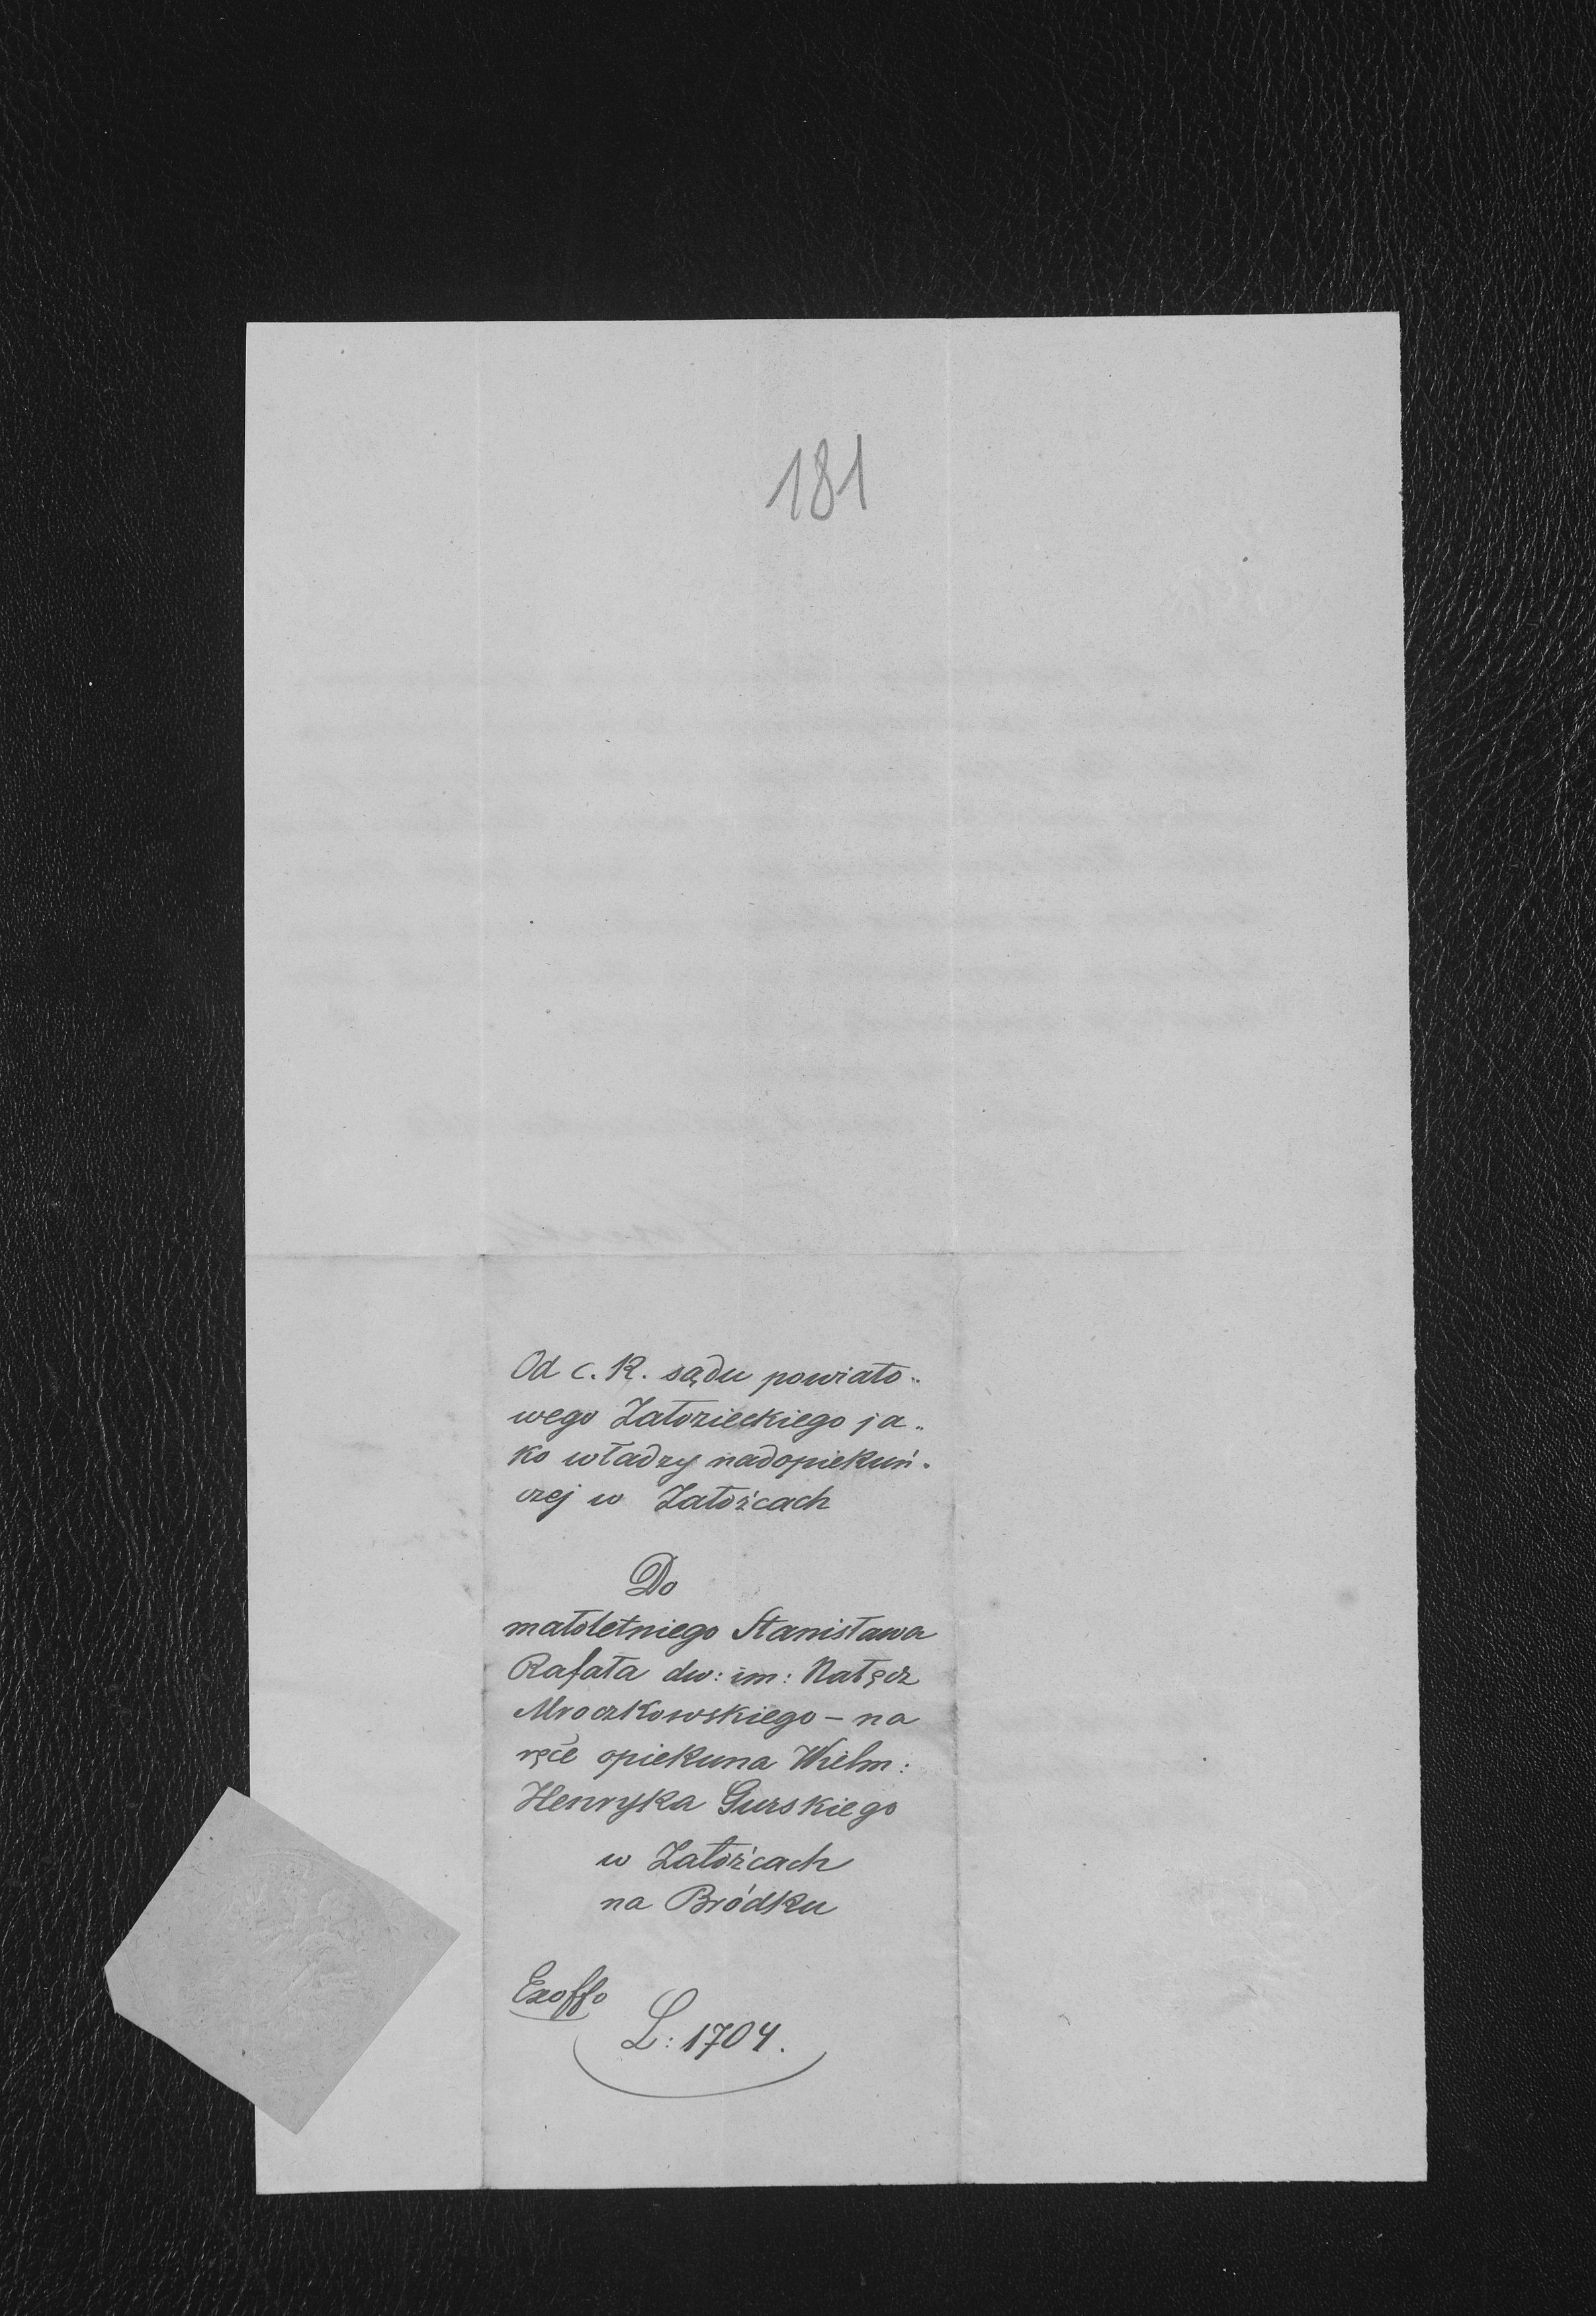 181
Od c. K. sądu powiato„
wego Załozieckiego ja„
ko władzy nadopiekuń„
czej w Załoźcach
Do
małoletniego Stanisława
Rafała dw: im: Nałęcz
Mroczkowskiego – na
ręce opiekuna Wielm:
Henryka Gurskiego
w Załoźcach
na Bródku
Exoffo
L: 1704.